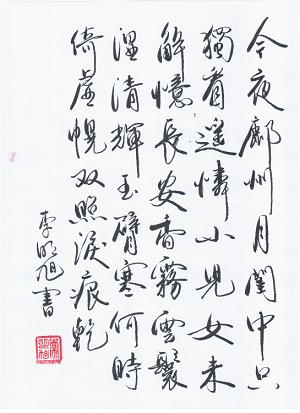 今夜鄜州月閨中只
獨看遙憐小兒女未
解憶長安香霧雲鬟
湿清輝玉臂寒何時
倚虛幌双照淚痕乾
李明旭書